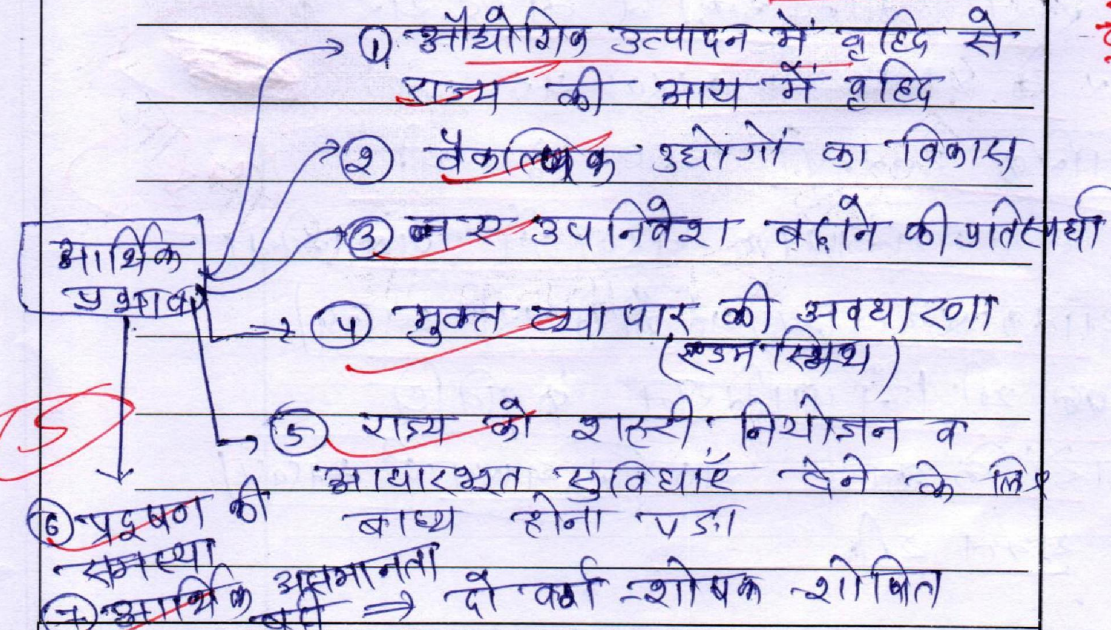 ① औद्योगिक उत्पादन में वृद्धि से
राज्य की आय में वृद्धि
② वैकल्पिक उद्योगों का विकास
③ नए उपनिवेश बनाने की प्रतिस्पर्धा
आर्थिक
प्रभाव
④ मुक्त व्यापार की अवधारणा
(एडम स्मिथ)
⑤ राज्य को शहरी नियोजन व
आधारभूत सुविधाएँ देने के लिए
बाध्य होना पड़ा
5
⑥ प्रदूषण की
समस्या
⑦ आर्थिक असमानता
बढ़ी ⇒ दो वर्ग - शोषक शोषित